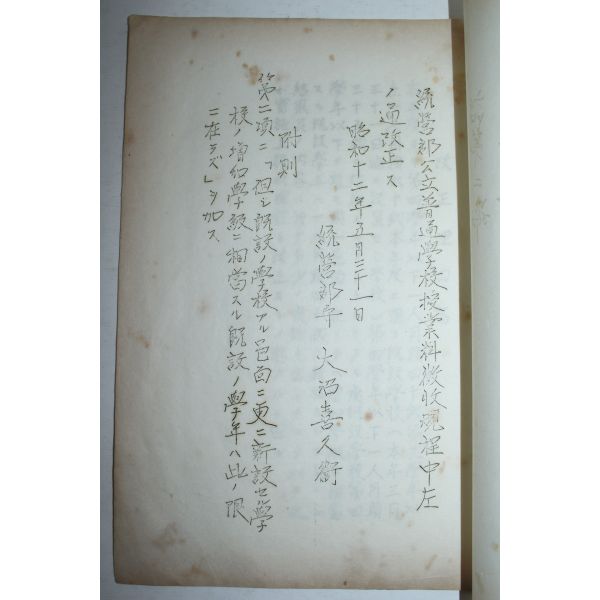 統營郡公立普通學校授業料徴收規程中左
ノ通改正ス
昭和十二年五月三十一日
統營郡守 大沼喜久衛
附則
第二項ニ「但シ既設ノ學校アル邑面ニ更ニ新設セル學
校ノ増加學級ニ相當スル既設ノ學年ハ此ノ限
ニ在ラズ」ヲ加ス